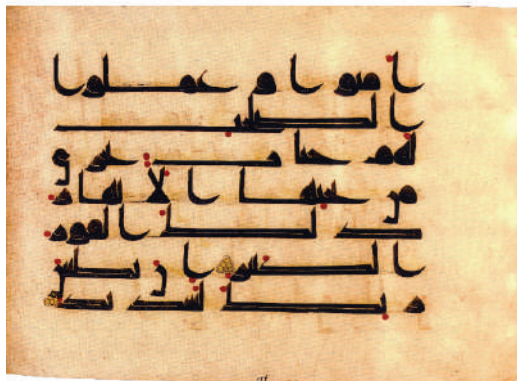 امنوا وعملوا
الصلحت
لهم جنت تجري
من تحتها الانهر
ذلك الفوز
الكبير ان بطش
ربك لشديد